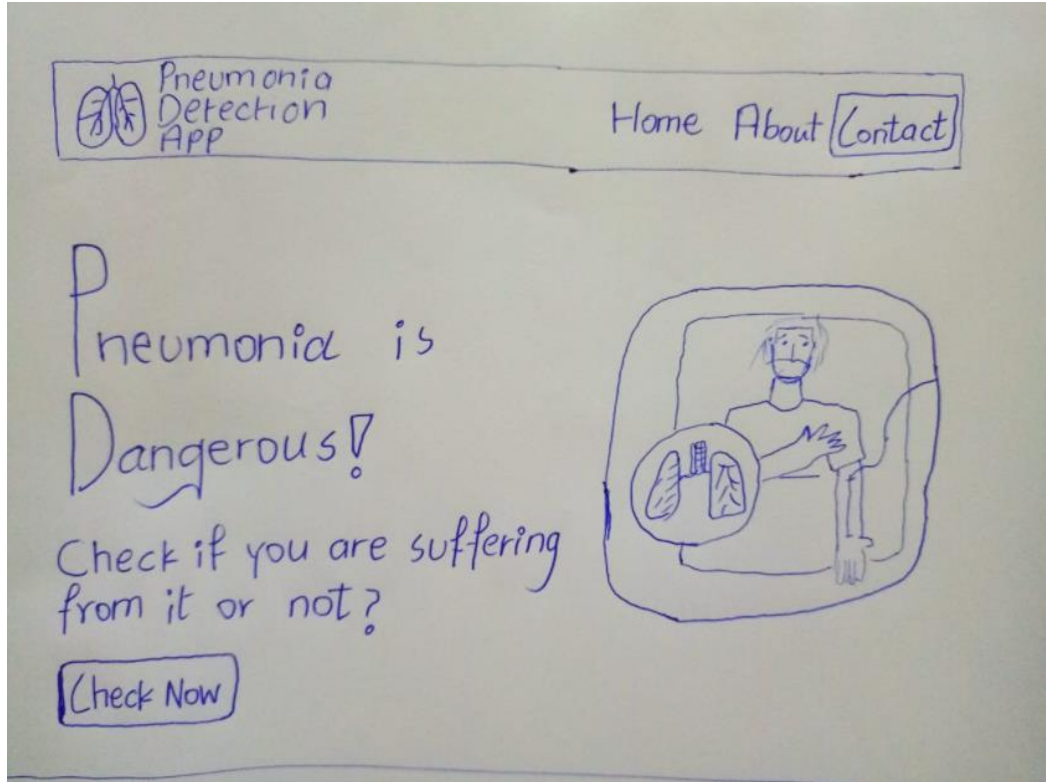 Pneumonia
Detection
App
Home About Contact
Pneumonia is
Dangerous!
Check if you are suffering
from it or not?
Check Now